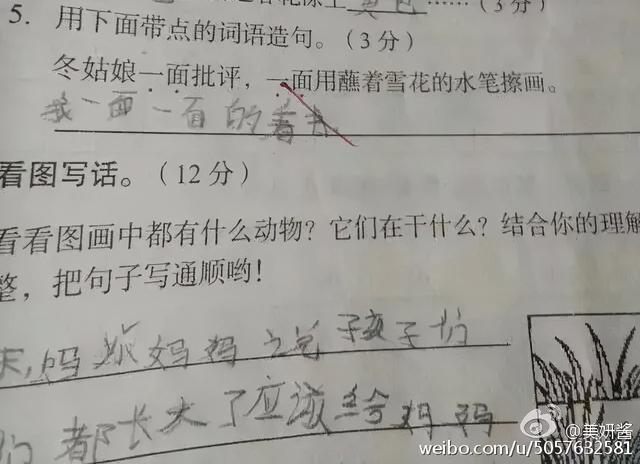 黄色……（3分）
5. 用下面带点的词语造句。（3分）
冬姑娘一面批评，一面用蘸着雪花的水笔擦画。
我一面一面的看书
看图写话。（12分）
看看图画中都有什么动物？它们在干什么？结合你的理解
整，把句子写通顺哟！
天，蚂蚁妈妈之说子孩子们
们都长大了应该给妈妈
@美妍酱
weibo.com/u/5057632581